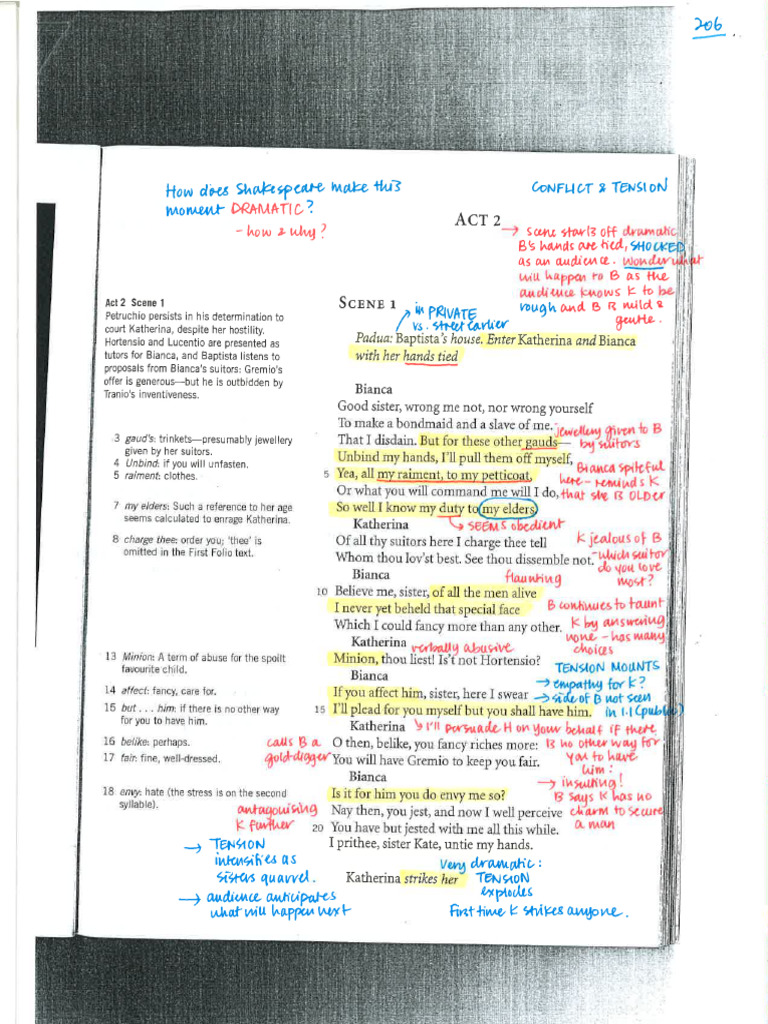 206
How does Shakespeare make this
moment DRAMATIC?
- how & why?
CONFLICT & TENSION
ACT 2
→ scene starts off dramatic
B's hands are tied, SHOCKED
as an audience. Wonder what
will happen to B as the
audience knows K to be
rough and B is mild &
gentle.
Act 2 Scene 1
Petruchio persists in his determination to
court Katherina, despite her hostility.
Hortensio and Lucentio are presented as
tutors for Bianca, and Baptista listens to
proposals from Bianca's suitors: Gremio's
offer is generous—but he is outbidden by
Tranio's inventiveness.
3 gaud's: trinkets—presumably jewellery
given by her suitors.
4 Unbind: if you will unfasten.
5 raiment: clothes.
7 my elders: Such a reference to her age
seems calculated to enrage Katherina.
8 charge thee: order you; 'thee' is
omitted in the First Folio text.
13 Minion: A term of abuse for the spoilt
favourite child.
14 affect: fancy, care for.
15 but . . . him: if there is no other way
for you to have him.
16 belike: perhaps.
17 fair: fine, well-dressed.
18 envy: hate (the stress is on the second
syllable).
SCENE 1
in PRIVATE
vs. street earlier
Padua: Baptista's house. Enter Katherina and Bianca
with her hands tied
Bianca
Good sister, wrong me not, nor wrong yourself
To make a bondmaid and a slave of me.
That I disdain. But for these other gauds—
jewellery given to B
by suitors
Unbind my hands, I'll pull them off myself,
5 Yea, all my raiment, to my petticoat,
Or what you will command me will I do,
So well I know my duty to my elders.
Bianca spiteful
here - reminds K
that she is OLDER
→ SEEMS obedient
Katherina
Of all thy suitors here I charge thee tell
Whom thou lov'st best. See thou dissemble not.
K jealous of B
- which suitor
do you love
most?
Bianca
flaunting
10 Believe me, sister, of all the men alive
I never yet beheld that special face
Which I could fancy more than any other.
B continues to taunt
K by answering
none - has many
choices
Katherina
verbally abusive
Minion, thou liest! Is't not Hortensio?
TENSION MOUNTS
→ empathy for K?
→ side of B not seen
in 1.1 (public)
Bianca
If you affect him, sister, here I swear
15 I'll plead for you myself but you shall have him.
↳ I'll persuade H on your behalf if there
is no other way for
you to have
him.
Katherina
O then, belike, you fancy riches more:
You will have Gremio to keep you fair.
calls B a
gold-digger
→ insulting!
B says K has no
charm to secure
a man
Bianca
Is it for him you do envy me so?
Nay then, you jest, and now I well perceive
20 You have but jested with me all this while.
I prithee, sister Kate, untie my hands.
antagonising
K further
→ TENSION
intensifies as
sisters quarrel.
→ audience anticipates
what will happen next
Katherina strikes her
very dramatic:
TENSION
explodes
First time K strikes anyone.